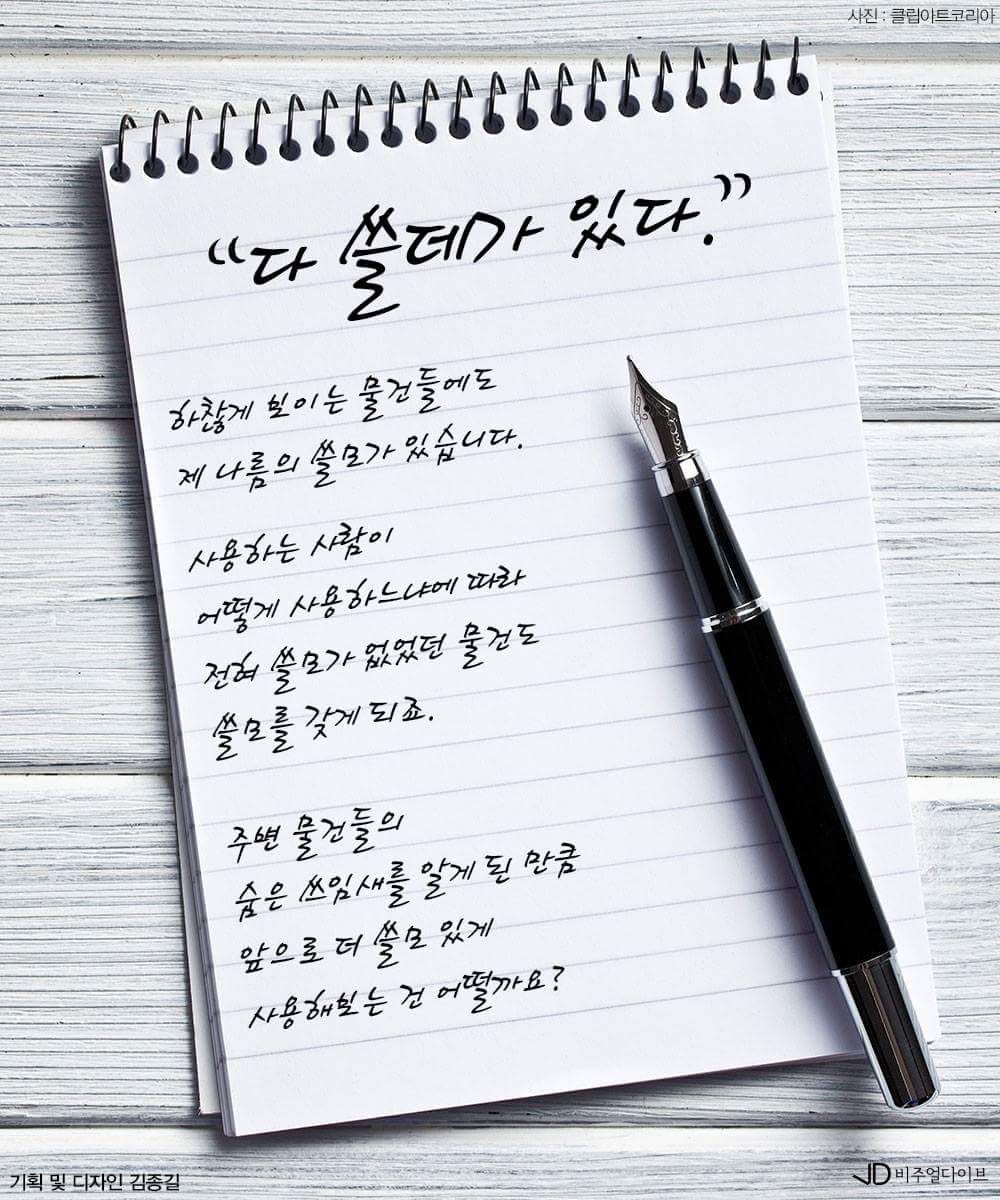 사진 : 클립아트코리아
“다 쓸데가 있다.”
하찮게 보이는 물건들에도
제 나름의 쓸모가 있습니다.
사용하는 사람이
어떻게 사용하느냐에 따라
전혀 쓸모가 없었던 물건도
쓸모를 갖게 되죠.
주변 물건들의
숨은 쓰임새를 알게 된 만큼
앞으로 더 쓸모 있게
사용해보는 건 어떨까요?
기획 및 디자인 김종길
VD 비주얼다이브